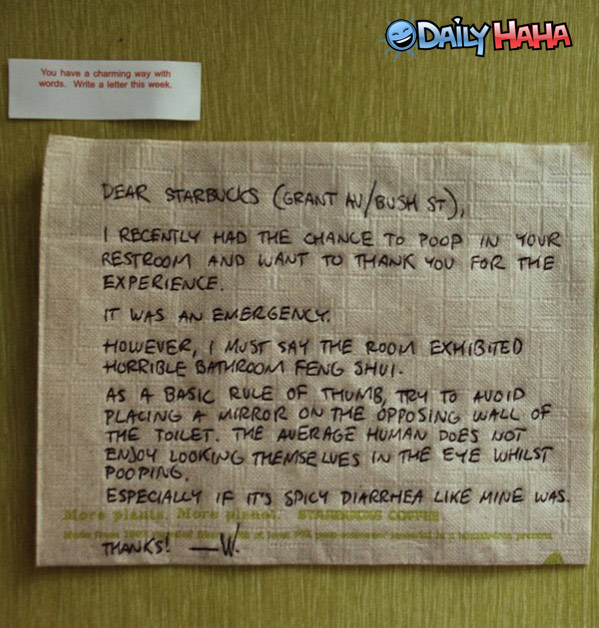 DAILY HAHA
You have a charming way with
words. Write a letter this week.
DEAR STARBUCKS (GRANT AV/BUSH ST),
I RECENTLY HAD THE CHANCE TO POOP IN YOUR
RESTROOM AND WANT TO THANK YOU FOR THE
EXPERIENCE.
IT WAS AN EMERGENCY.
HOWEVER, I MUST SAY THE ROOM EXHIBITED
HORRIBLE BATHROOM FENG SHUI.
AS A BASIC RULE OF THUMB, TRY TO AVOID
PLACING A MIRROR ON THE OPPOSING WALL OF
THE TOILET. THE AVERAGE HUMAN DOES NOT
ENJOY LOOKING THEMSELVES IN THE EYE WHILST
POOPING.
ESPECIALLY IF IT'S SPICY DIARRHEA LIKE MINE WAS.
More plants. More planet. STARBUCKS COFFEE
THANKS! —W.